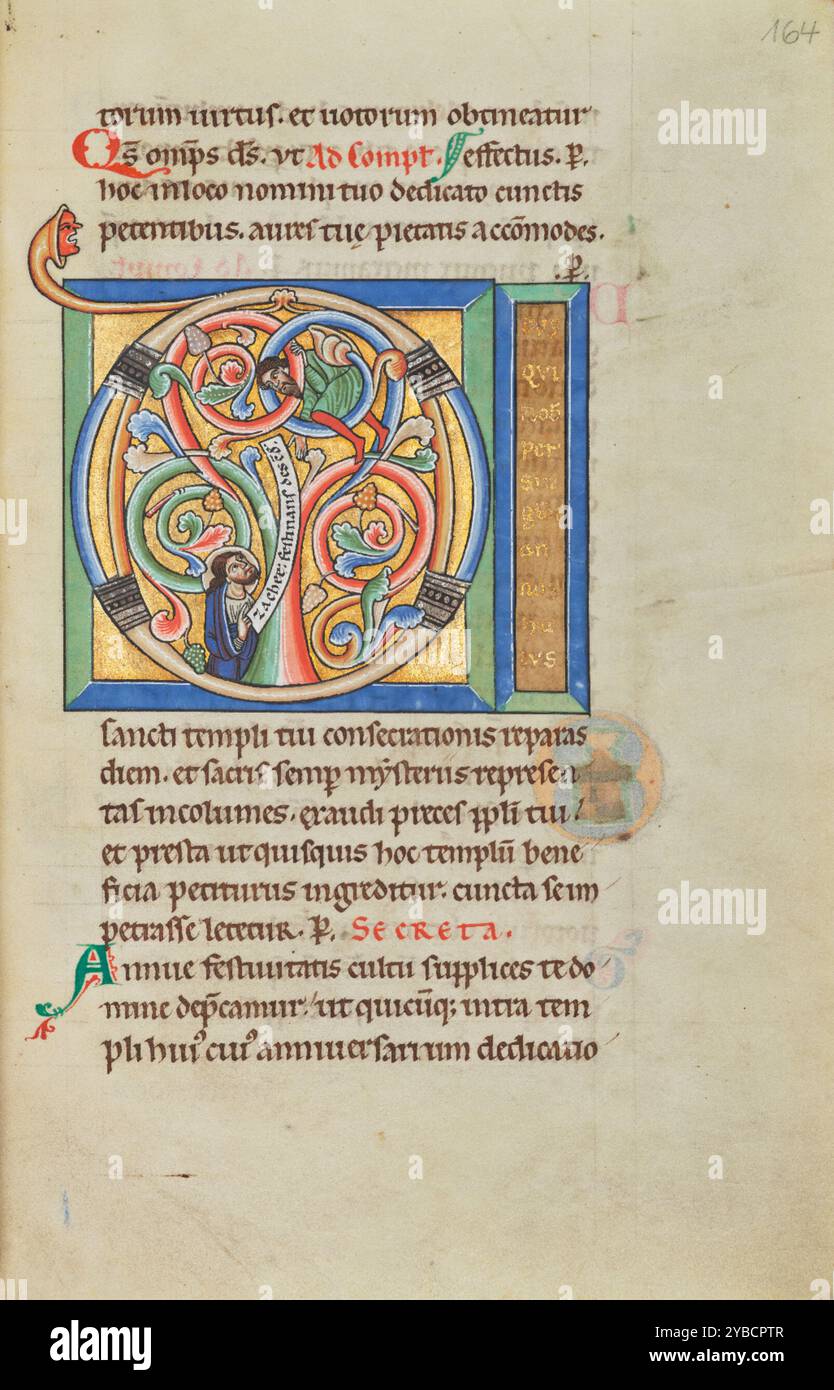 164
torum uirtus. et uotorum obtineatur
Qs omps ds. vt Ad Compt. effectus. P.
hoc in loco nomini tuo dedicato cunctis
petentibus. aures tuę pietatis accōmodes.
P.
zachee: festinans desc̄de
evs
qvi
nob
per
sin
an
nos
hu
ivs
sancti templi tui consecrationis reparas
diem. et sacris semp mysteriis represen
tas incolumes. exaudi preces ppli tui.
et presta ut quisquis hoc templū bene
ficia petiturus ingreditur. cuncta se im
petrasse letetur. P. Secreta.
Annue festiuitatis cultu supplices te do
mine dep̄camur. ut quicūq; intra tem
pli hui9 cui9 anniuersarium dedicatio
alamy
Image ID: 2YBCPTR
www.alamy.com